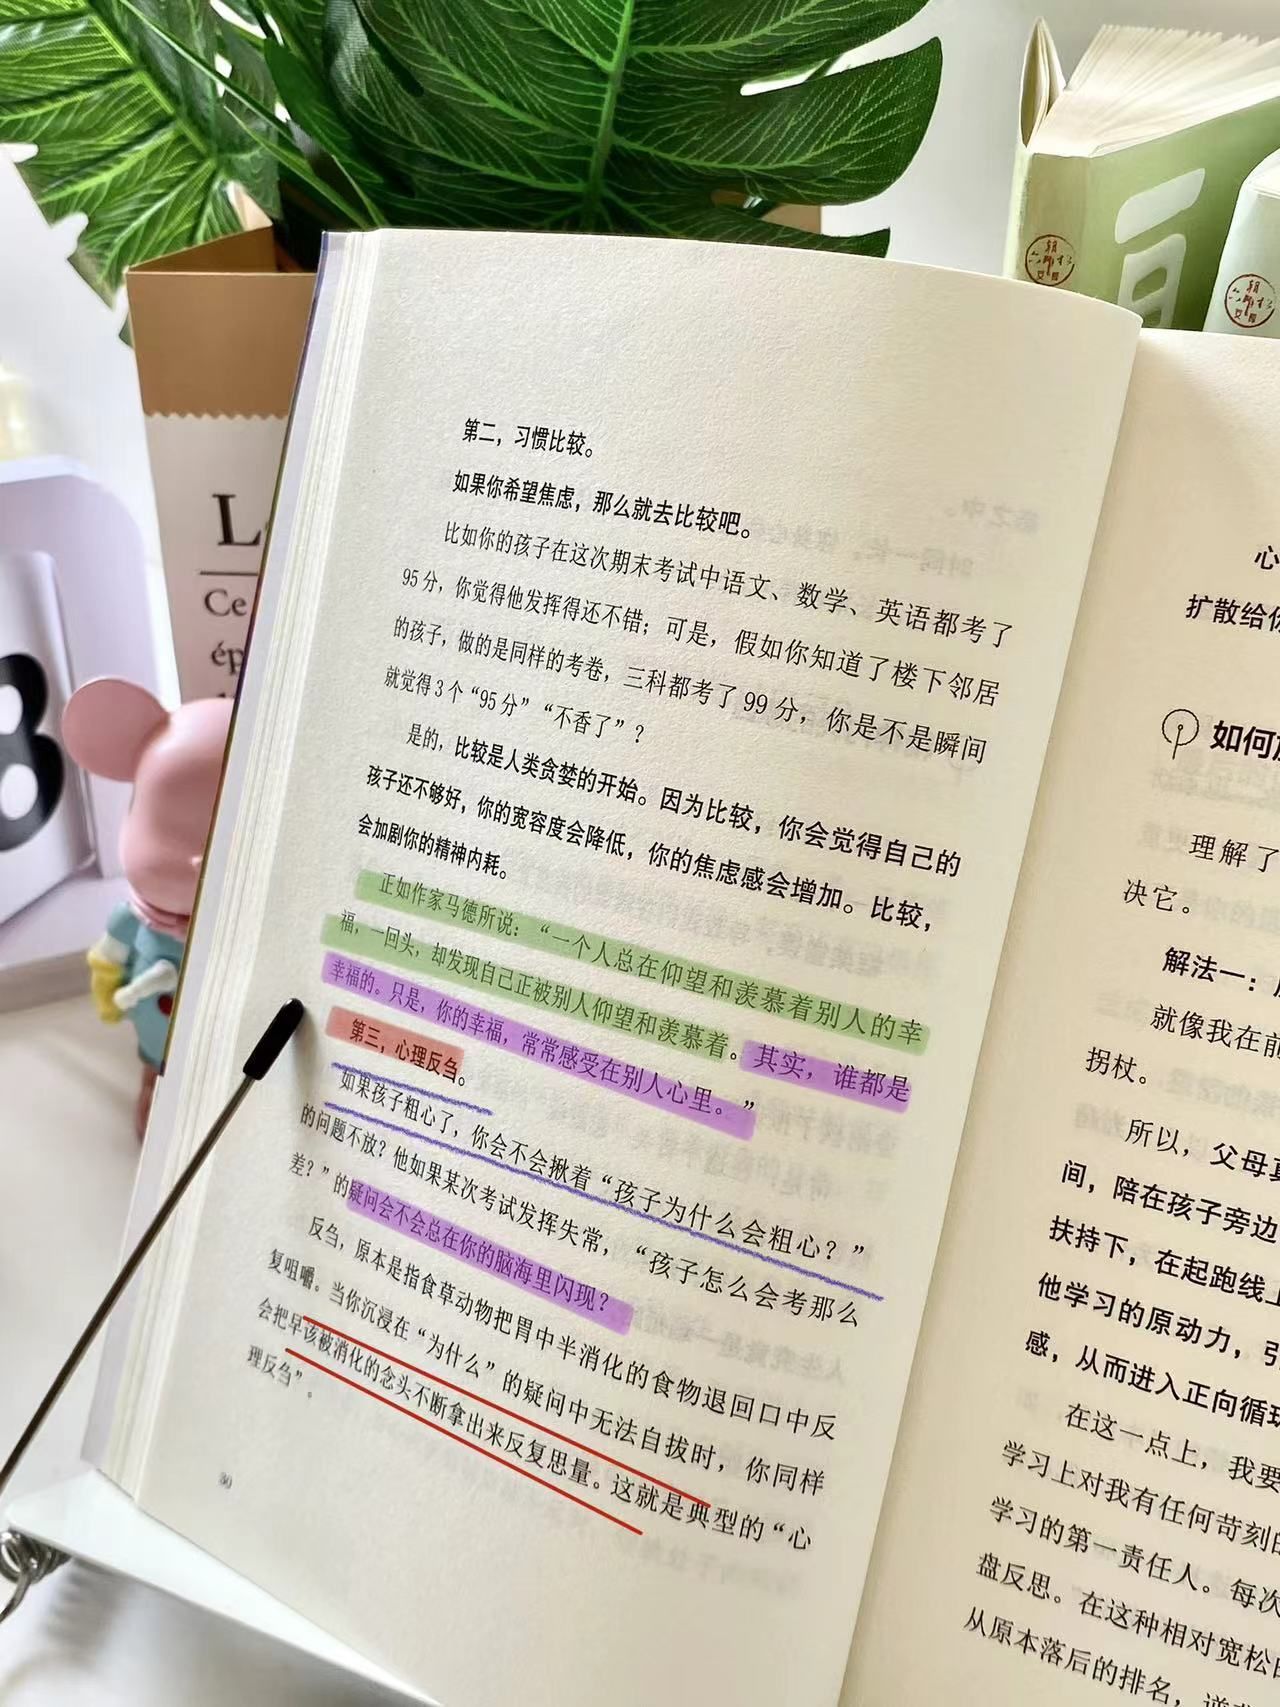 第二，习惯比较。
如果你希望焦虑，那么就去比较吧。
比如你的孩子在这次期末考试中语文、数学、英语都考了
95分，你觉得他发挥得还不错；可是，假如你知道了楼下邻居
的孩子，做的是同样的考卷，三科都考了99分，你是不是瞬间
就觉得3个“95分”“不香了”？
是的，比较是人类贪婪的开始。因为比较，你会觉得自己的
孩子还不够好，你的宽容度会降低，你的焦虑感会增加。比较，
会加剧你的精神内耗。
正如作家马德所说：“一个人总在仰望和羡慕着别人的幸
福，一回头，却发现自己正被别人仰望和羡慕着。其实，谁都是
幸福的。只是，你的幸福，常常感受在别人心里。”
第三，心理反刍。
如果孩子粗心了，你会不会揪着“孩子为什么会粗心？”
的问题不放？他如果某次考试发挥失常，“孩子怎么会考那么
差？”的疑问会不会总在你的脑海里闪现？
反刍，原本是指食草动物把胃中半消化的食物退回口中反
复咀嚼。当你沉浸在“为什么”的疑问中无法自拔时，你同样
会把早该被消化的念头不断拿出来反复思量。这就是典型的“心
理反刍”。
30
心
扩散给你
如何
理解了
决它。
解法一：
就像我在前
拐杖。
所以，父母真
间，陪在孩子旁边
扶持下，在起跑线上
他学习的原动力，引
感，从而进入正向循环
在这一点上，我要
学习上对我有任何苛刻的
学习的第一责任人。每次
盘反思。在这种相对宽松的
从原本落后的排名，逆
L
Ce
ép
B